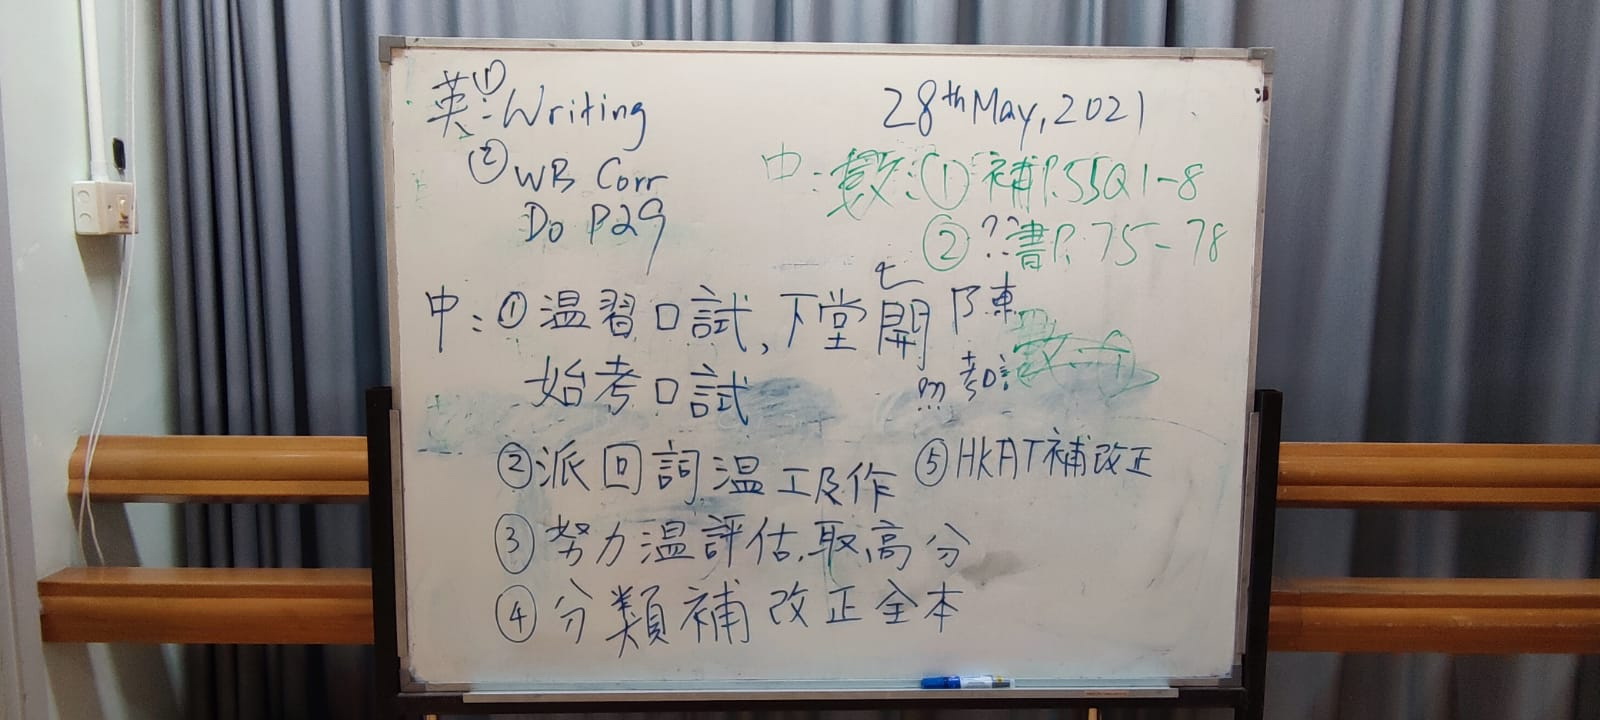 英:①Writing
②WB Corr
Do P29
28th May, 2021
中:數:①補P.55Q1-8
②??書P.75-78
中:①温習口試,下堂開
始考口試
七
陳
②派回詞温工及作
③努力温評估,取高分
④分類補改正全本
⑤HKAT補改正